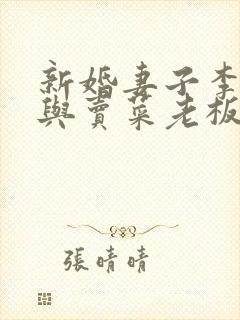 新婚妻子李
與賣菜老板
張晴晴